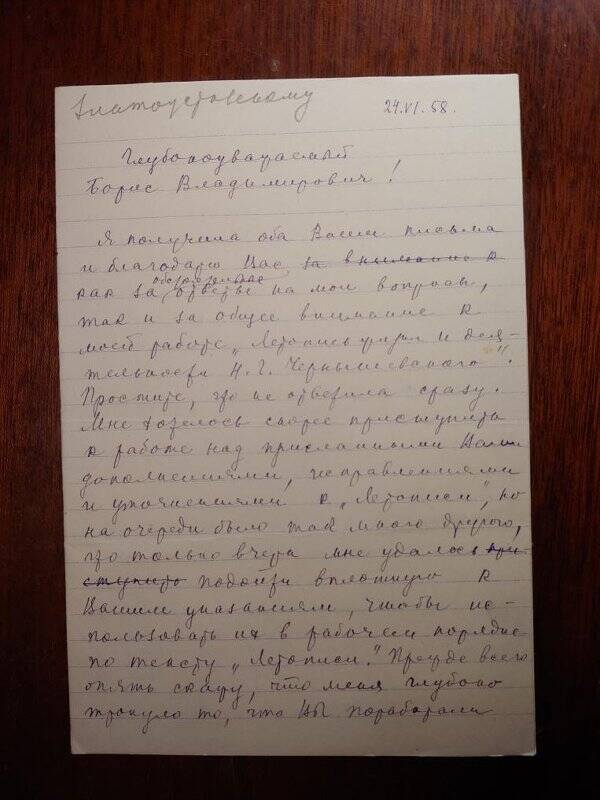 Златоустовскому
24.VI.58.
Глубокоуважаемый
Борис Владимирович!
Я получила оба Ваши письма
и благодарю Вас за внимание к
как за обстоятельные ответы на мои вопросы,
так и за общее внимание к
моей работе „Летопись жизни и дея-
тельности Н. Г. Чернышевского".
Простите, что не ответила сразу.
Мне хотелось скорее приступить
к работе над присланными Вами
дополнениями, исправлениями
и уточнениями к „Летописи", но
на очереди было так много другого,
что только вчера мне удалось при-
ступить подойти вплотную к
Вашим указаниям, чтобы ис-
пользовать их в рабочем порядке
по тексту „Летописи." Прежде всего
опять скажу, что меня глубоко
тронуло то, что Вы поработали